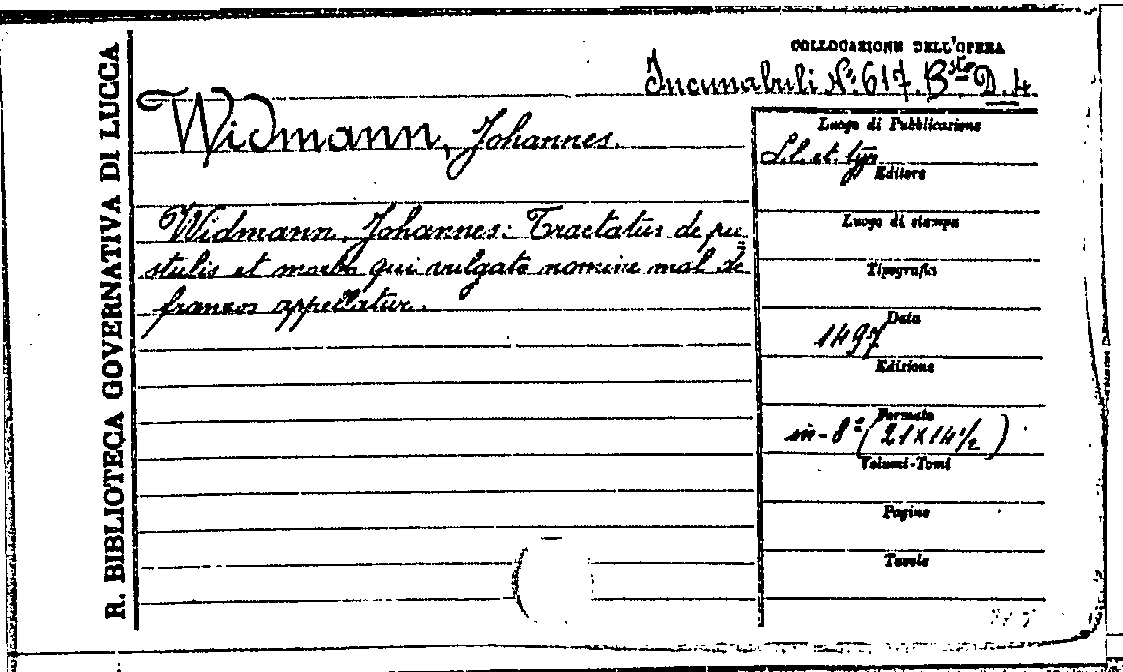 R. BIBLIOTECA GOVERNATIVA DI LUCCA
COLLOCAZIONE DELL'OPERA
Incunabuli N.° 617. Bsta D. 4
Widmann, Johannes.
Widmann, Johannes: Tractatus de pu
stulis et morbo qui vulgato nomine mal de
franzos appellatur.
Luogo di Pubblicazione
S. l. et. typ
Editore
Luogo di stampa
Tipografia
Data
1497
Edizione
Formato
in-8° (21X14½)
Volumi-Tomi
Pagine
Tavole